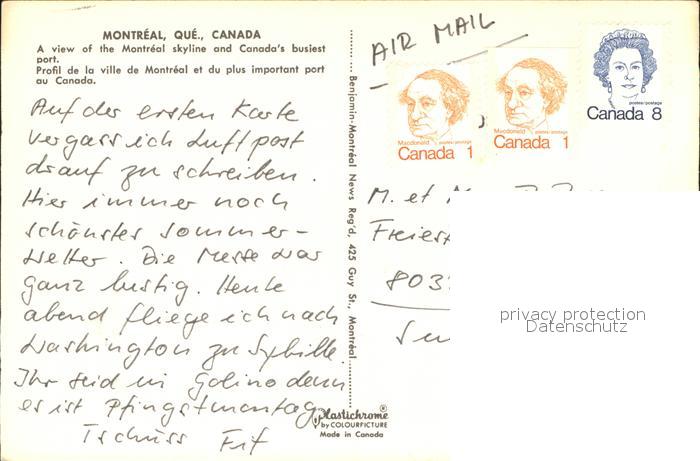 MONTRÉAL, QUÉ., CANADA
A view of the Montréal skyline and Canada's busiest
port.
Profil de la ville de Montréal et du plus important port
au Canada.
Auf der ersten Karte
vergass ich Luftpost
drauf zu schreiben.
Hier immer noch
schönstes Sommer-
wetter. Die Messe war
ganz lustig. Heute
abend fliege ich nach
Washington zu Sybille.
Ihr seid in Golino denn
es ist Pfingstmontag
Tschüss Fif
Benjamin-Montréal News Reg'd, 425 Guy St., Montréal.
Plastichrome®
by COLOURPICTURE
Made in Canada
AIR MAIL
Macdonald postes/postage
Canada 1
Macdonald postes/postage
Canada 1
postes/postage
Canada 8
M. et
803
privacy protection
Datenschutz